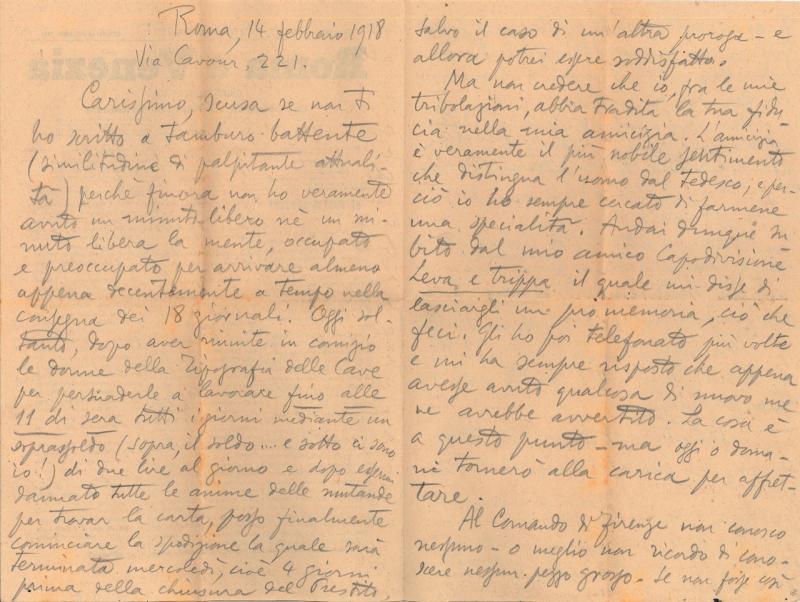 Roma, 14 febbraio 1918
Via Cavour, 221.
Carissimo, scusa se non ti
ho scritto a tamburo battente
(similitudine di palpitante attuali-
tà) perchè finora non ho veramente
avuto un minuto libero nè un mi-
nuto libera la mente, occupato
e preoccupato per arrivare almeno
appena decentemente a tempo nella
consegna dei 18 giornali. Oggi sol-
tanto, dopo aver riunite in comizio
le donne della Tipografia delle Cave
per persuaderle a lavorare fino alle
11 di sera tutti i giorni mediante un
soprassoldo (sopra, il soldo... e sotto ci sono
io!) di due lire al giorno e dopo essermi
dannato tutte le anime delle mutande
per trovar la carta, posso finalmente
cominciare la spedizione la quale sarà
terminata mercoledì, cioè 4 giorni
prima della chiusura del Prestito,
salvo il caso di un'altra proroga - e
allora potrei essere soddisfatto.
Ma non credere che io, fra le mie
tribolazioni, abbia tradita la tua fidu-
cia nella mia amicizia. L'amicizia
è veramente il più nobile sentimento
che distingua l'uomo dal tedesco, e per-
ciò io ho sempre cercato di farmene
una specialità. Andai dunque su-
bito dal mio amico Capodivisione
Leva e trippa il quale mi disse di
lasciargli un pro memoria, ciò che
feci. Gli ho poi telefonato più volte
e mi ha sempre risposto che appena
avesse avuto qualcosa di nuovo me
ne avrebbe avvertito. La cosa è
a questo punto - ma oggi o doma-
ni tornerò alla carica per affret-
tare.
Al Comando di Firenze non conosco
nessuno - o meglio non ricordo di cono-
scere nessun pezzo grosso. Se non fosse così